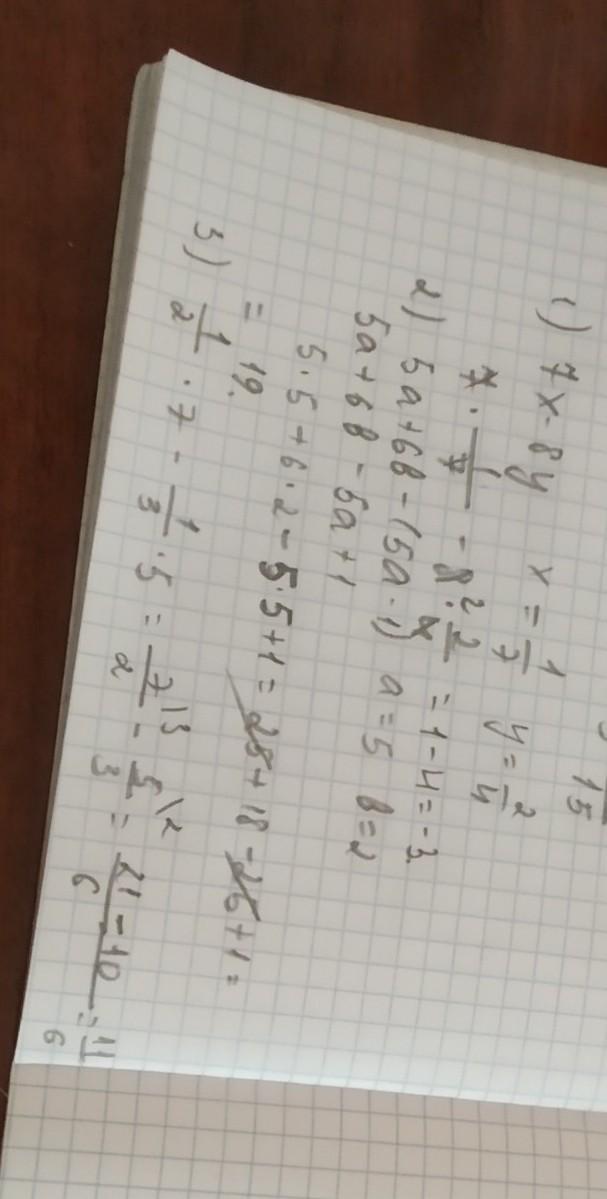 15
1) 7x-8y x = 1/7 y = 2/4
7 · 1/7 - 8² · 2/4 = 1-4=-3
2) 5a+6в-(5a-1) a=5 в=2
5a+6в-5a+1
5·5+6·2-5·5+1=25+18-25+1=
= 19.
3) 1/2 · 7 - 1/3 · 5 = 7\3/2 - 5\2/3 = 21-10/6 = 11/6